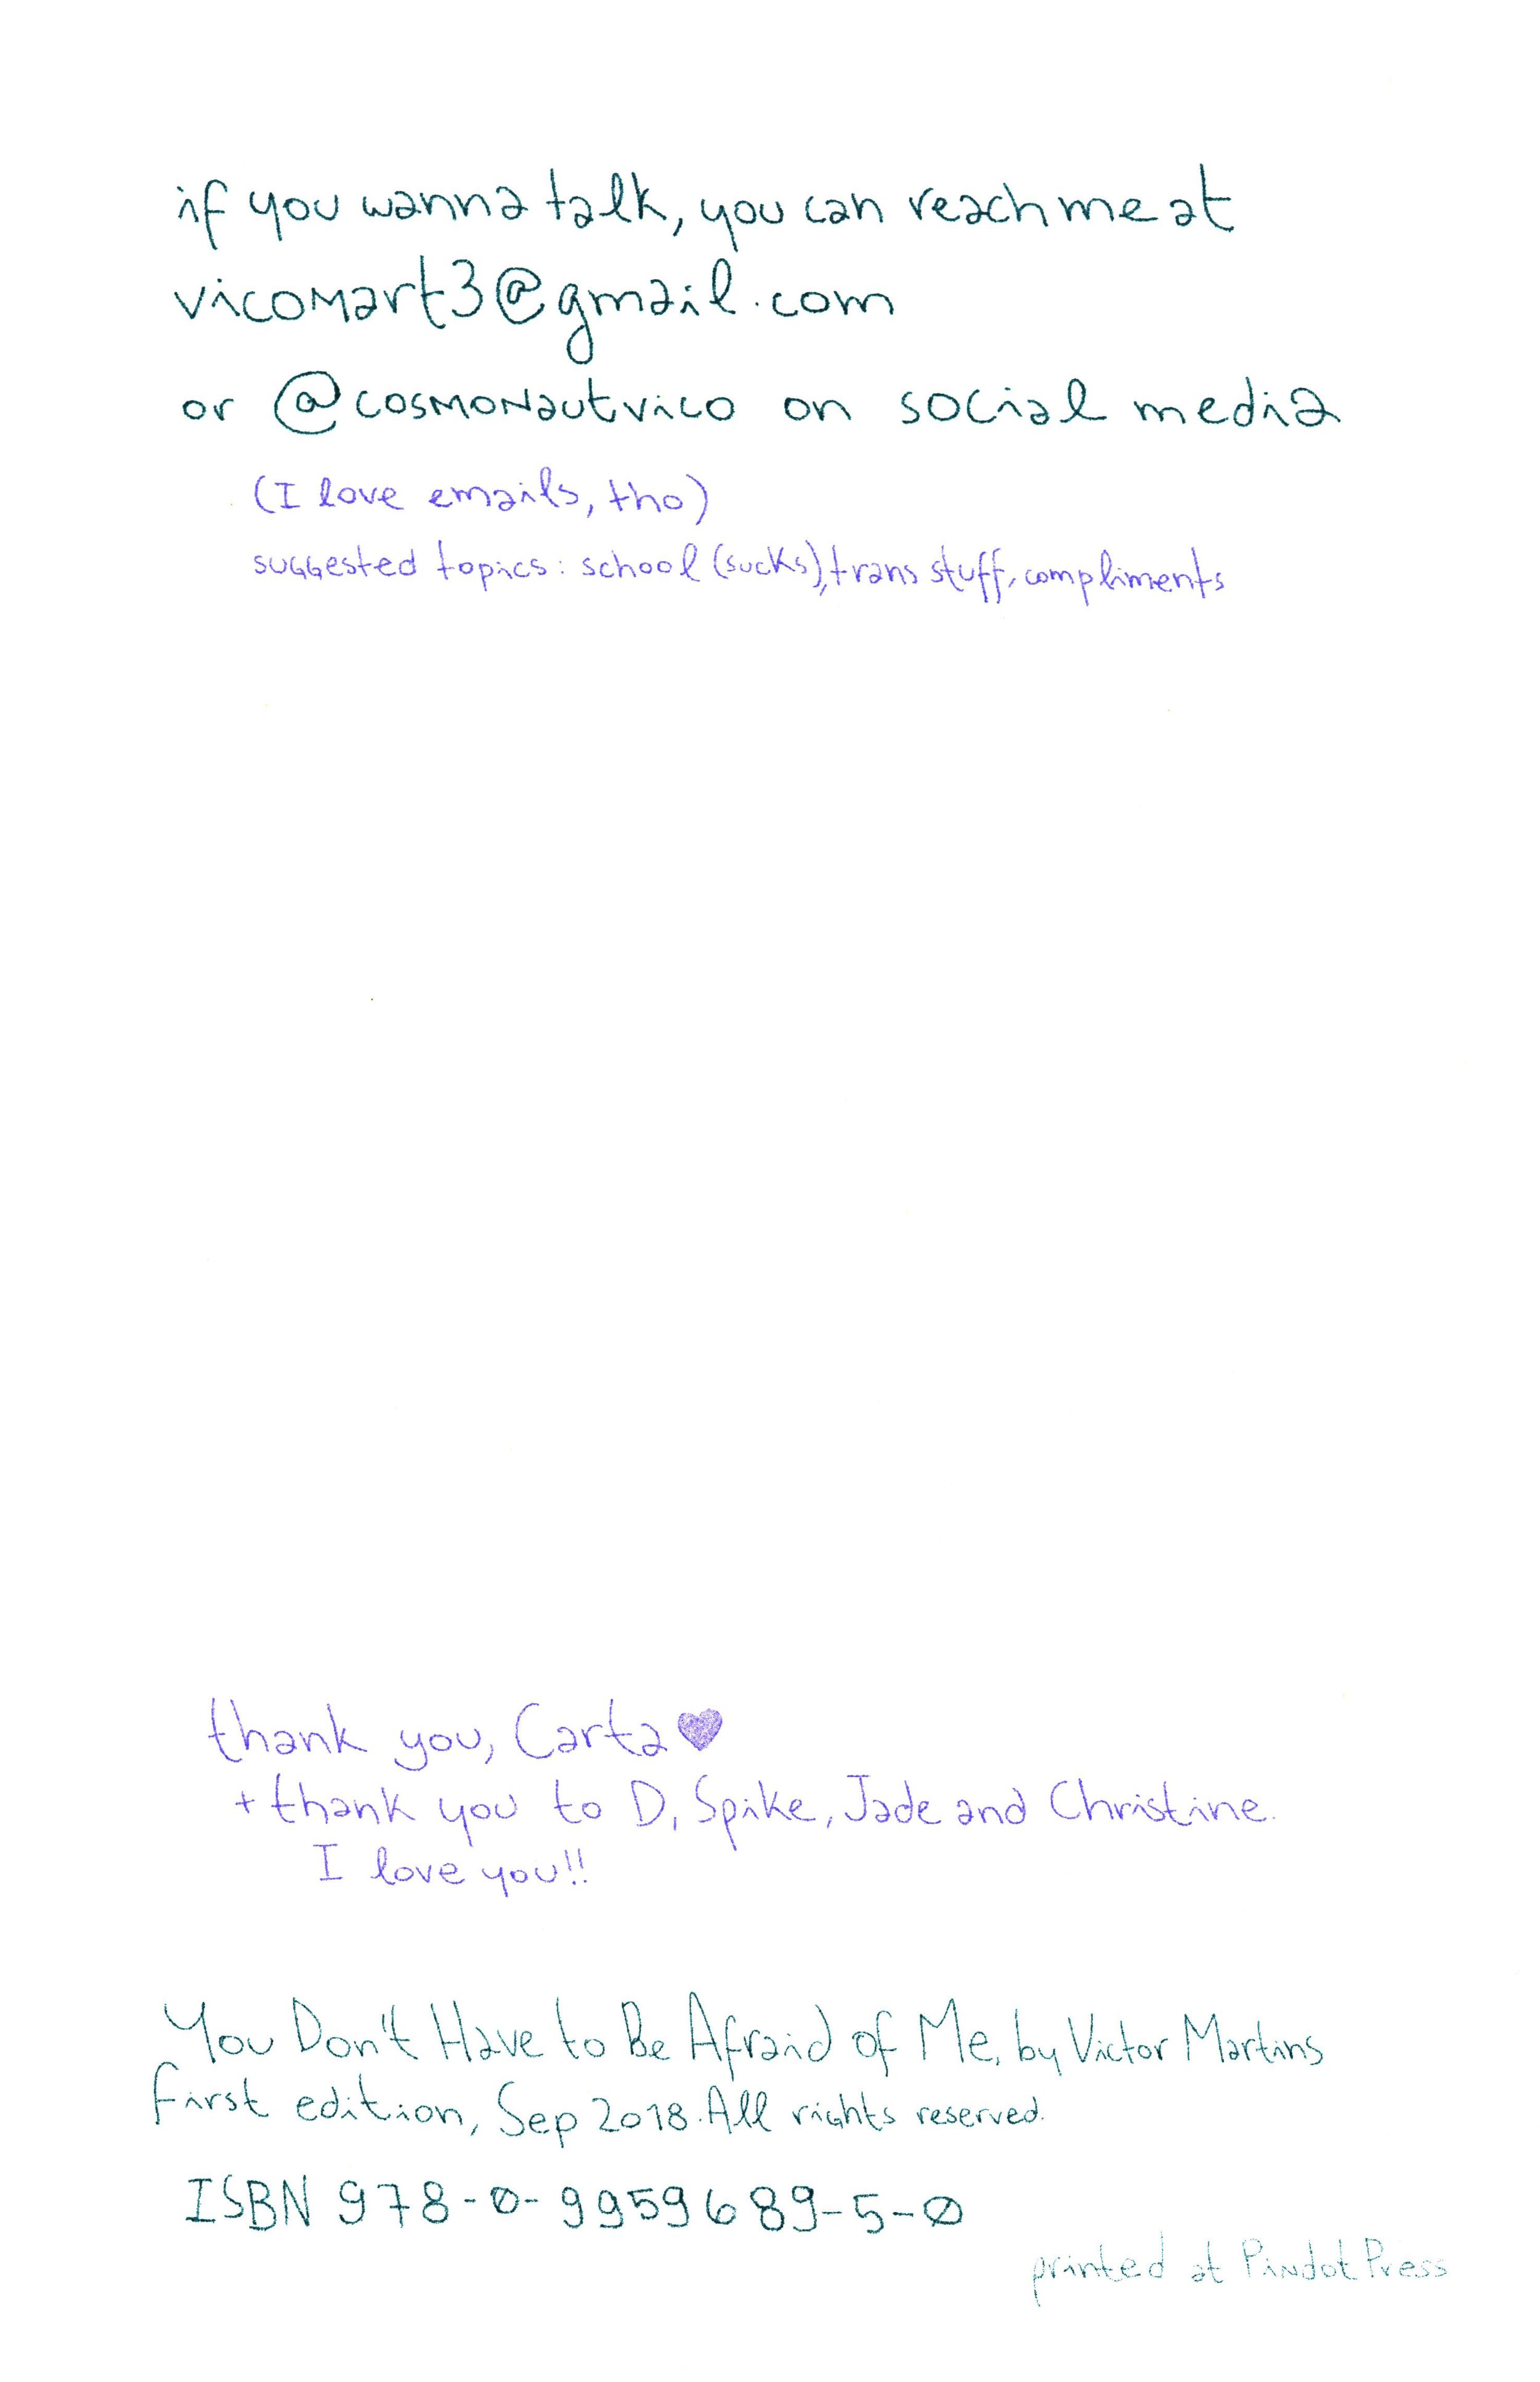 if you wanna talk, you can reach me at
vicomart3@gmail.com
or @cosmonautvico on social media
(I love emails, tho)
suggested topics: school (sucks), trans stuff, compliments
thank you, Carta ♥
+ thank you to D, Spike, Jade and Christine.
I love you!!
You Don't Have to Be Afraid of Me, by Victor Martins
First edition, Sep 2018. All rights reserved.
ISBN 978-0-9959689-5-0
printed at Pindot Press